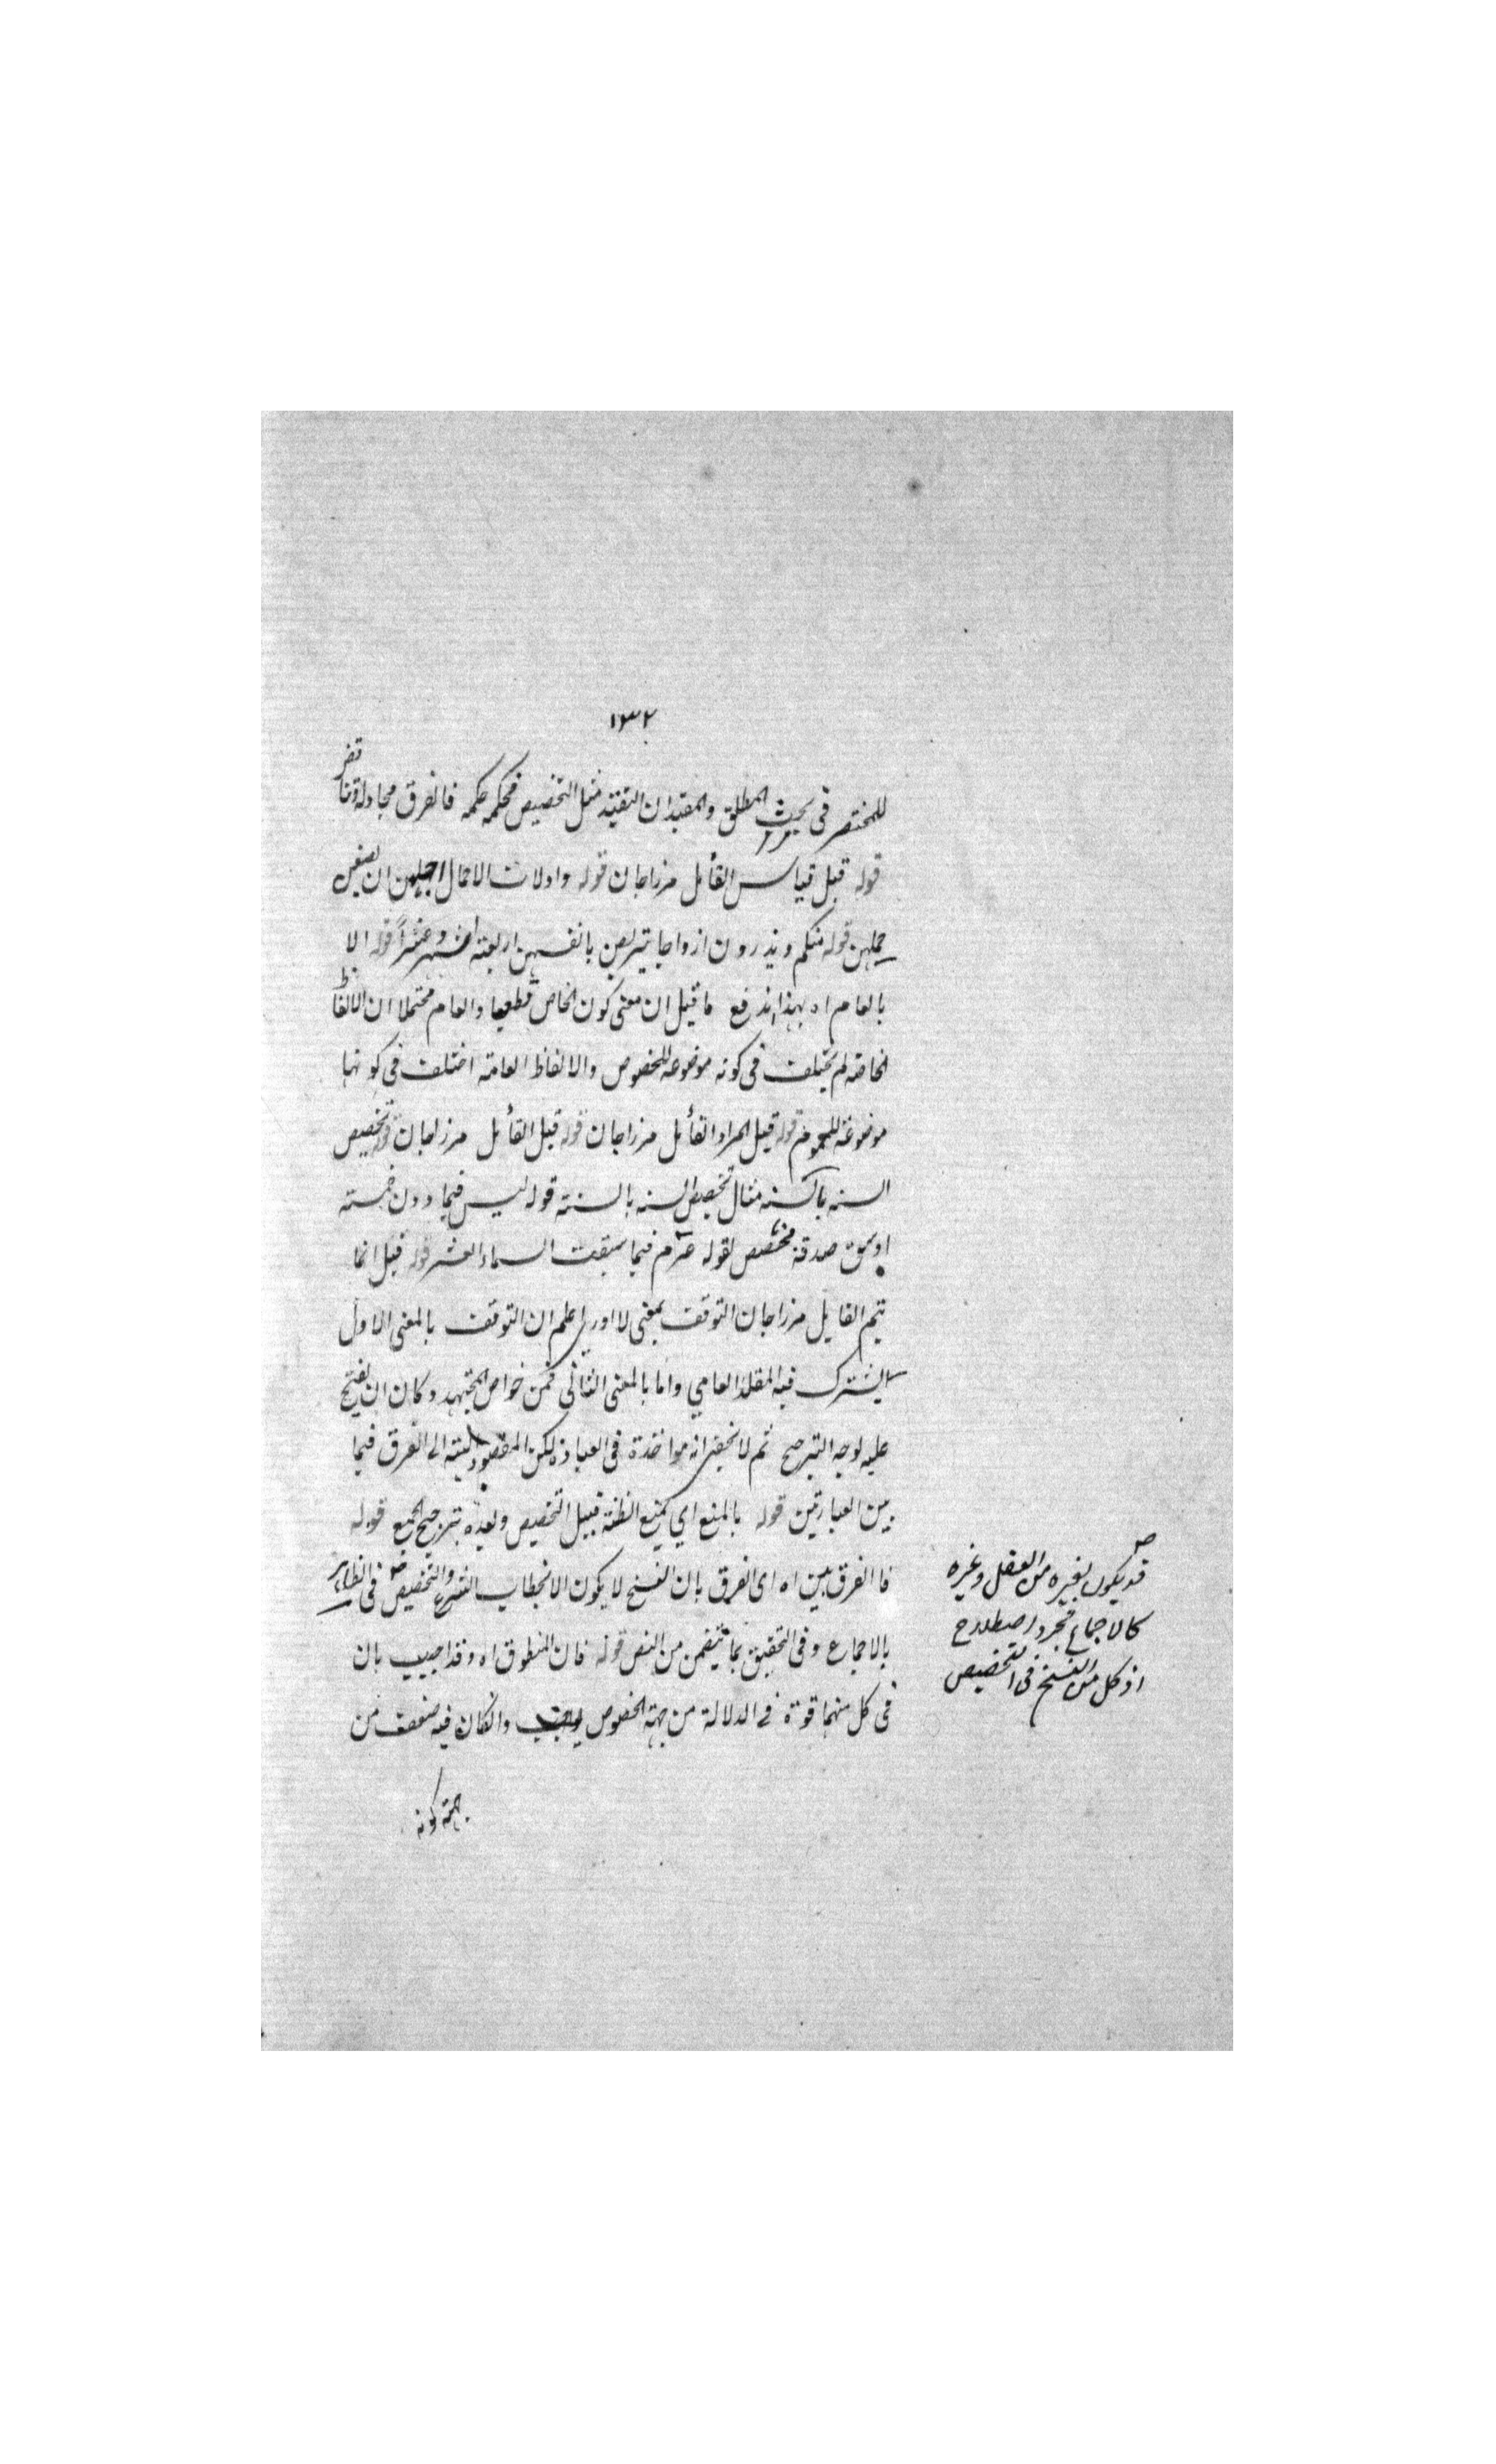 ١٣٢
للمختصر فى بحث المطلق والمقيد ان التقييد مثل التخصيص فحكمه حكمه فالفرق مجادلة
قوله قيل قياس القائل مرزاجان قوله واولات الاحمال اجلهن ان يضعن
حملهن قوله منكم ويذرون ازواجا يتربصن بانفسهن اربعة اشهر وعشراً قوله الا
بالعام اه بهذا اندفع ما قيل ان معنى كون الخاص قطعيا والعام محتملا ان الالفاظ
الخاصة لم يختلف فى كونه موضوعه للخصوص والالفاظ العامة اختلف فى كونها
موضوعة للعموم قوله قيل المراد القائل مرزاجان قوله قيل القائل مرزاجان قوله تخصيص
السنه بالسنه مثال تخصيص السنه بالسنة قوله ليس فيما دون خمسة
اوسق صدقة مخصص لقوله عم فيما سقت السماء العشر قوله قيل انما
يتم القايل مرزاجان التوقف بمعنى لا ادرى اعلم ان التوقف بالمعنى الاول
يشترك فيه المقلد العامي واما بالمعنى الثانى فمن خواص المجتهد وكان ان
عليه لوجه الترجيح ثم لا يخفى انه مواخذة فى العبارة لكن المقصود الى الفرق فيما
بين العبارتين قوله بالمنع اي يمنع الظنة قبيل التخصيص وبعده بترجيح الجمع قوله
فالفرق بين اه اى الفرق بان النسخ لا يكون الا بخطاب الشرع والتخصيص فى الظاهر
بالاجماع وفى التحقيق بما يتضمن من النص قوله فان المنطوق اه وقد اجيب بان
فى كل منهما قوة فى الدلالة من جهة الخصوص وانكان فيه ضعف من
جهة كونه
قد يكون بغيره من العقل وغيره
كالاجماع مجرد اصطلاح
اذ كل من النسخ فى التخصيص